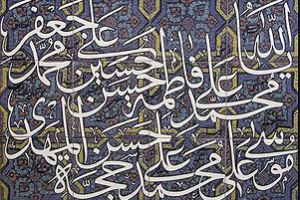 الله محمد علی فاطمه حسن حسین علی محمد جعفر
موسی علی محمد علی حسن حجة المهدی